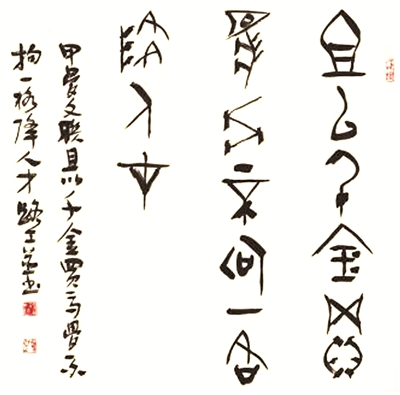 且以千金買
馬骨不拘一格
降人才
甲骨文联且以千金買馬骨不
拘一格降人才路工